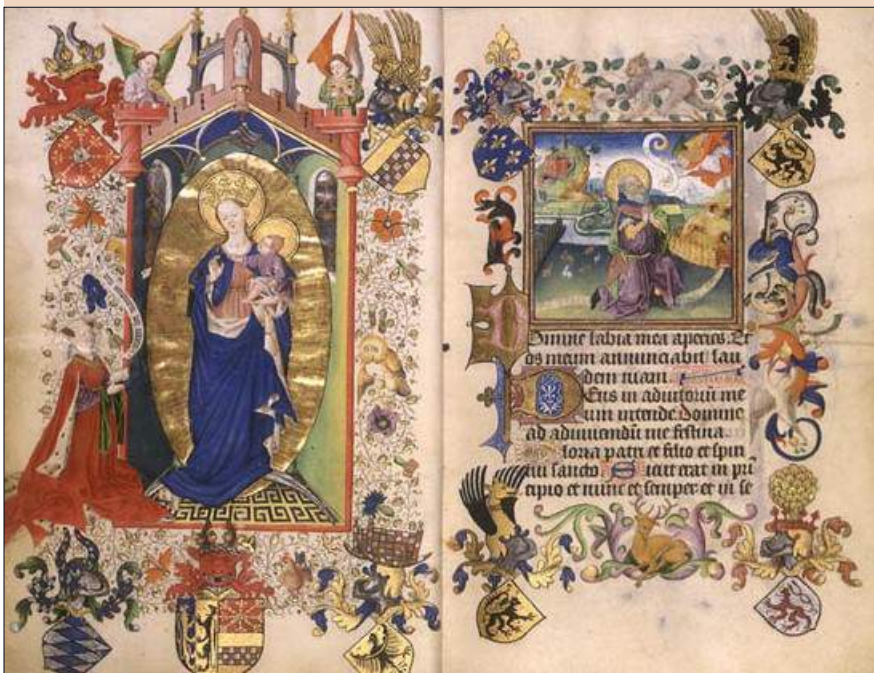 Domine labia mea aperies. Et
os meum annunciabit lau
dem tuam.
Deus in adiutoriū me
um intende Domine
ad adiuuandū me festina.
loria patri et filio et spiri
tui sancto. Sicut erat in pri
cipio et nunc et semper et in se